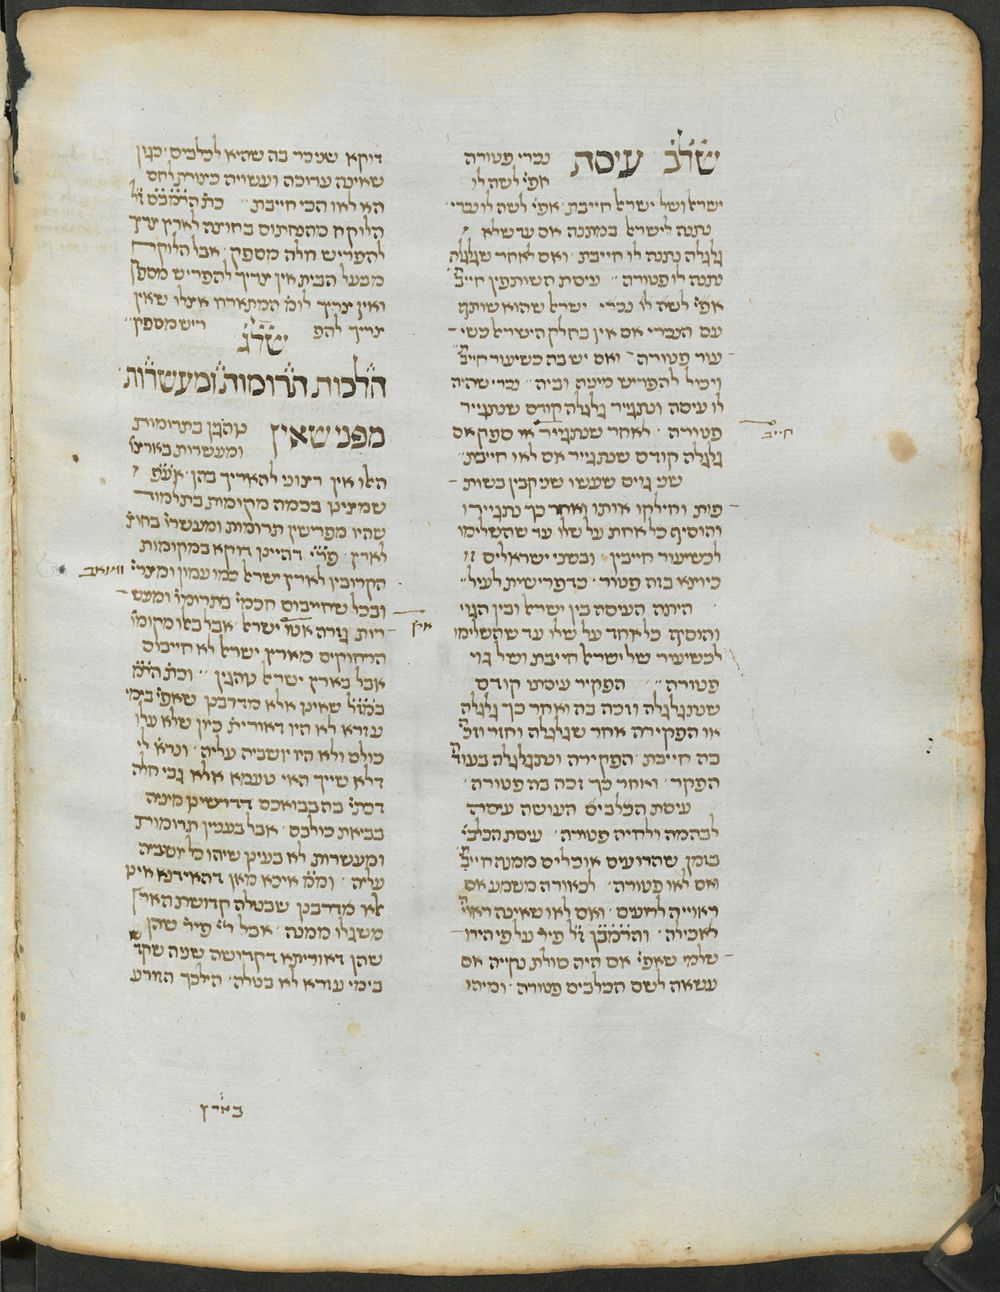 של̇ב̇ עיסת נכרי פטורה
אפי' לשה לו
ישראל ושל ישראל חייבת אפי' לשה לו נכרי
נתנה לישראל במתנה אם עד שלא
גלגלה נתנה לו חייבת ואם לאחר שגלגלה
נתנה לו פטורה עיסת השותפין חייב'
אפי' לשה לו נכרי ישראל שהוא שותף
עם הנכרי אם אין בחלק הישראל כשי
עור פטורה ואם יש בה כשיעור חייב'
ויכול להפריש מינה וביה נכרי שהיה
לו עיסה ונתגייר גלגלה קודם שנתגייר
פטורה לאחר שנתגייר או ספק אם
חייב'
גלגלה קודם שנתגייר אם לאו חייבת
שני גוים שעשו שני קבין בשות
פות וחילקו אותו ואחר כך נתגיירו
והוסיף כל אחת על שלו עד שהשלימו
לכשיעור חייבין ובשני ישראלים
כיוצא בזה פטור כדפרישית לעיל
היתה העיסה בין ישראל ובין הגוי
והוסיף כל אחד על שלו עד שהשלימו
לכשיעור של ישראל חייבת ושל גוי
פטורה הפקיר עיסתו קודם
שנתגלגלה וזכה בה ואחר כך גלגלה
או הפקירה אחר שגלגלה וחזר וזכ'
בה חייבת הפקירה ונתגלגלה בעוד
הפקר ואחר כך זכה בה פטורה
עיסת הכלבים העושה עיסה
לבהמה ולחיה פטורה עיסת הכלבי'
בזמן שהרועים אוכלים ממנה חייב'
ואם לאו פטורה לכאורה משמע אם
ראוייה לרועים ואם לאו שאינה ראוי'
לאכילה והרמב̇ן ז̇ל פיר' על פי הירו
שלמי שאפי' אם היה סולת נקייה אם
עשאה לשם הכלבים פטורה ומיהו
דוקא שניכר בה שהיא לכלבים כגון
שאינה ערוכה ועשויה כצורת לחם
הא לאו הכי חייבת כת' הרמב̇ם ז̇ל
הלוקח מהנחתום בחוצה לארץ צריך
להפריש חלה מספק אבל הלוקח
מבעל הבית אין צריך להפריש מספק
ואין צריך לומ' המתארח אצלו שאין
צריך להפ ריש מספק
של̇ג̇
הלכות תרומות ומעשרות
מפני שאין נוהגין בתרומות
ומעשרות בארצ'
הללו אין רצוני להאריך בהן אע̇פ̇
שמצינו בכמה מקומות בתלמוד
שהיו מפרישין תרומות ומעשר' בחוץ
לארץ פר̇י̇ דהיינו דוקא במקומות
הקרובין לארץ ישראל כמו עמון ומצרי'
ומואב
ובבל שחייבום חכמי' בתרומ' ומעש
רות גזרה אטו ישראל אבל באלו מקומו'
ארץ
הרחוקים מארץ ישראל לא חייבום
אבל בארץ ישראל נוהגין וכת' הר̇מ̇
במז̇ל שאינן אלא מדרבנן שאפי' בימי
עזרא לא היו דאורית' כיון שלא עלו
כולם ולא היו יושביה עליה ונר' לי
דלא שייך האי טעמא אלא גבי חלה
דכתי' בה בבואכם דדרשינן מיניה
בביאת כולכם אבל בענין תרומות
ומעשרות לא בעינן שיהו כל יושביה
עליה ומ̇מ̇ איכא מאן דהאידנא אינן
אלא מדרבנן שבטלה קדושת הארץ
משגלו ממנה אבל ר̇י̇ פיר' שהן
שהן דאוריתא דקדושה שניה שקד'
בימי עזרא לא בטלה הילכך הזורע
בארץ